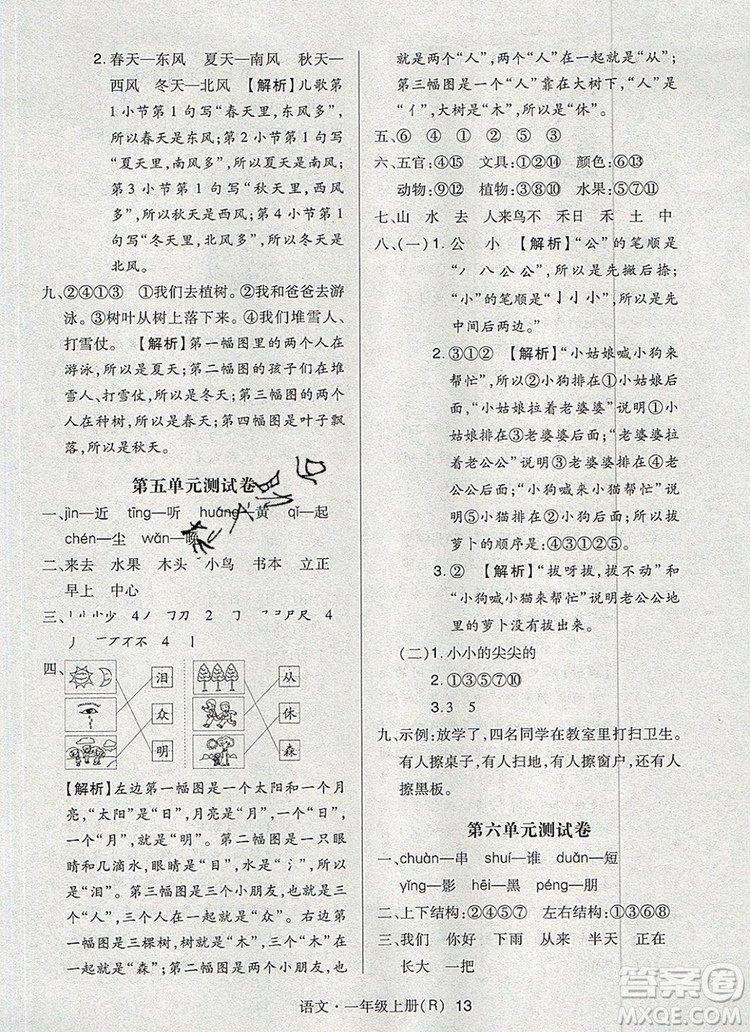 2. 春天—东风 夏天—南风 秋天—
西风 冬天—北风 【解析】儿歌第
1 小节第 1 句写“春天里,东风多”,
所以春天是东风;第 2 小节第 1 句
写“夏天里,南风多”,所以夏天是
南风;第 3 小节第 1 句写“秋天里,
西风多”,所以秋天是西风;第 4 小
节第 1 句写“冬天里,北风多”,所
以冬天是北风。
九、②④①③ ①我们去植树。②我和爸爸去游
泳。③树叶从树上落下来。④我们堆雪人、
打雪仗。 【解析】第一幅图里的两个人在
游泳,所以是夏天;第二幅图的孩子们在堆
雪人、打雪仗,所以是冬天;第三幅图的两个
人在种树,所以是春天;第四幅图是叶子飘
落,所以是秋天。
第五单元测试卷
一、jìn—近 tīng—听 huáng—黄 qǐ—起
chén—尘 wǎn—晚
二、来去 水果 木头 小鸟 书本 立正
早上 中心
三、
四、
泪 从
众 休
明 森
【解析】左边第一幅图是一个太阳和一个月
亮,“太阳”是“日”,月亮是“月”,一个“日”,
一个“月”,所以是“明”;第二幅图是一只眼
睛和几滴水,“眼睛”是“目”,“水”是“氵”,所
以是“泪”;第三幅图是三个小朋友,也就是
三个“人”,三个“人”在一起是“众”。右边第
一幅图是三棵树,树就是“木”,三个“木”在
一起是“森”;第二幅图是两个小朋友,也
就是两个“人”,两个“人”在一起是“从”;
第三幅图是一个“人”靠在大树下,“人”是
“亻”,大树是“木”,所以是“休”。
五、⑥ ④ ① ② ⑤ ③
六、五官:④⑮ 文具:①②⑭ 颜色:⑥⑬
动物:⑨⑩ 植物:③⑧ 水果:⑤⑦
七、山 水 去 人来鸟不 禾日 禾 土 中
八、(一)1. 公 小 【解析】“公”的笔顺是
“丿 八 公 公”,所以是先撇后捺;
“小”的笔顺是“亅 小 小”,所以是先
中间后两边。
2. ③①② 【解析】“小姑娘喊小狗来
帮忙”,说明③小狗排在①小姑娘后
面;“小姑娘拉着老婆婆”说明①小
姑娘排在②老婆婆后面;②老婆婆
排在④老公公后面;“小狗喊来小猫
帮忙”,所以⑤小猫排在最后。所以拔
萝卜的顺序是:④②①③⑤。
3. ② 【解析】“拔呀拔,拔不动”和
“小狗喊小猫来帮忙”说明老公公地
里的萝卜很大。
(二)1. 小小的尖尖的
2. ①③⑤⑦⑩
3. 3 5
九、示例:放学了,四名同学在教室里打扫卫生。
有人擦桌子,有人扫地,有人擦窗户,还有人
擦黑板。
第六单元测试卷
一、chuàn—串 shuí—谁 duǎn—短
yǐng—影 hēi—黑 péng—朋
二、上下结构:②④⑤⑦ 左右结构:①③⑥⑧
三、我们 你好 下雨 从来 半天 正在
长大 一把
语文·一年级上册(R) 13
答案圈
MXQE.COM